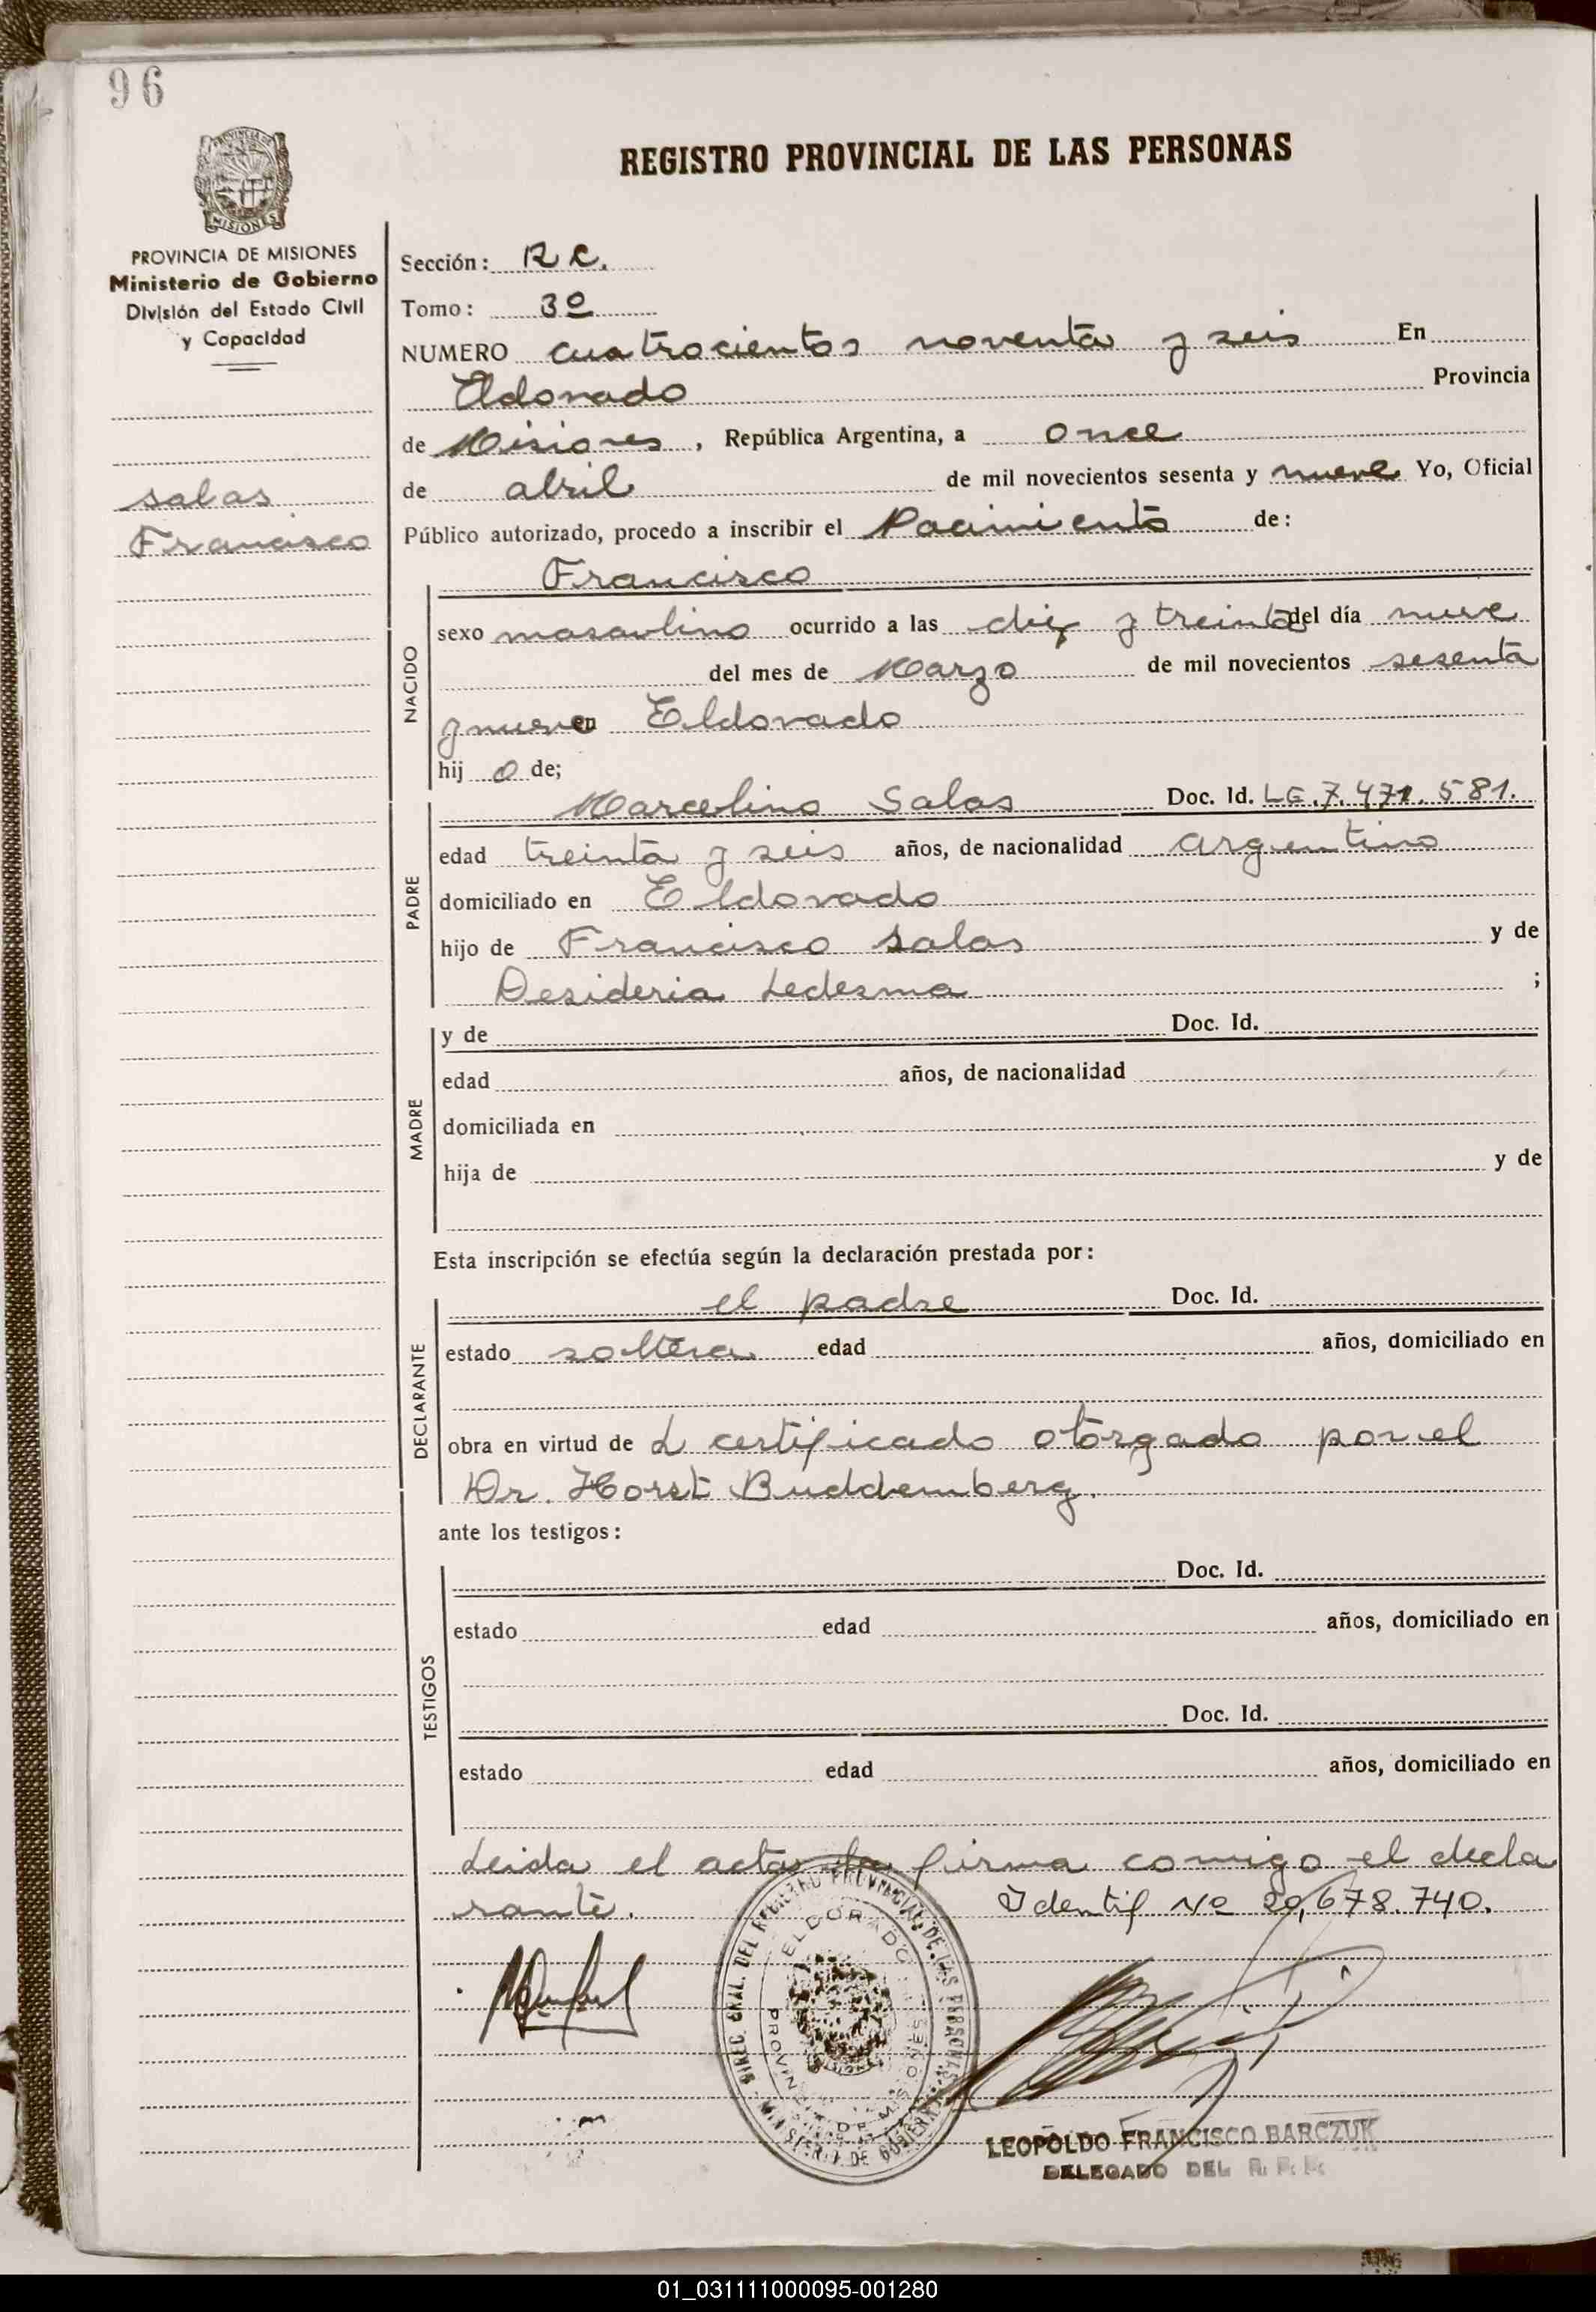 96
REGISTRO PROVINCIAL DE LAS PERSONAS
PROVINCIA DE MISIONES
Ministerio de Gobierno
División del Estado Civil
y Capacidad
Salas
Francisco
Sección: R C.
Tomo: 3º
NUMERO cuatrocientos noventa y seis En
Eldorado Provincia
de Misiones, República Argentina, a once
de abril de mil novecientos sesenta y nueve Yo, Oficial
Público autorizado, procedo a inscribir el Nacimiento de:
Francisco
NACIDO
sexo masculino ocurrido a las diez y treinta del día nueve
del mes de Marzo de mil novecientos sesenta
y nueve en Eldorado
hij o de;
PADRE
Marcelino Salas Doc. Id. LE.7.471.581.
edad treinta y seis años, de nacionalidad argentino
domiciliado en Eldorado
hijo de Francisco Salas y de
Desideria Ledesma ;
MADRE
y de Doc. Id.
edad años, de nacionalidad
domiciliada en
hija de y de
Esta inscripción se efectúa según la declaración prestada por:
DECLARANTE
el padre Doc. Id.
estado soltera edad años, domiciliado en
obra en virtud de L certificado otorgado por el
Dr. Horst Buddemberg.
ante los testigos:
TESTIGOS
Doc. Id.
estado edad años, domiciliado en
Doc. Id.
estado edad años, domiciliado en
Leida el acta la firma comigo el decla
rante. Identif Nº 20,678.740.
DIREC. GRAL. DEL REGISTRO PROVINCIAL DE LAS PERSONAS
MINISTERIO DE GOBIERNO
ELDORADO
PROVINCIA DE MISIONES
LEOPOLDO FRANCISCO BARCZUK
DELEGADO DEL R. P. P.
01_031111000095-001280